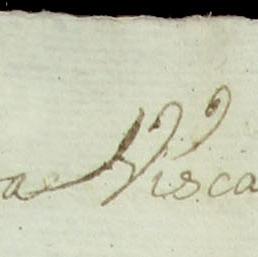 a Visca